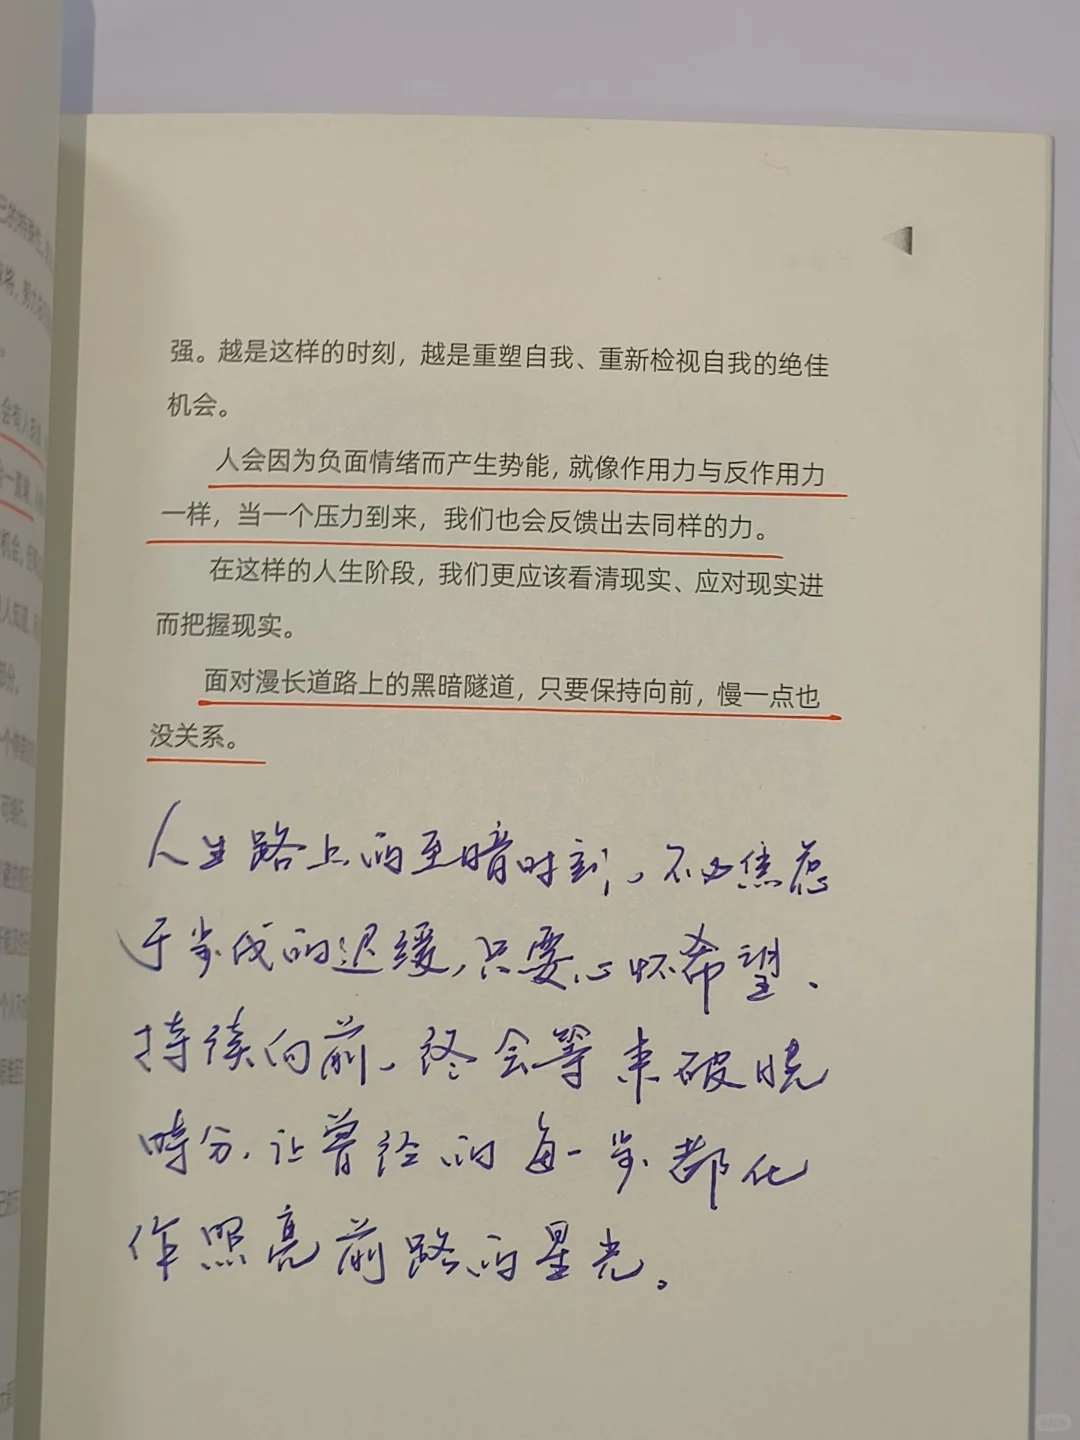 强。越是这样的时刻，越是重塑自我、重新检视自我的绝佳
机会。
人会因为负面情绪而产生势能，就像作用力与反作用力
一样，当一个压力到来，我们也会反馈出去同样的力。
在这样的人生阶段，我们更应该看清现实、应对现实进
而把握现实。
面对漫长道路上的黑暗隧道，只要保持向前，慢一点也
没关系。
人生路上的至暗时刻，不必焦虑
于步伐的迟缓，只要心怀希望、
持续向前，终会等来破晓
时分，让曾经的每一步都化
作照亮前路的星光。